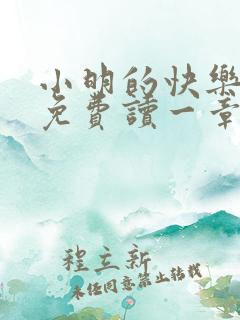 小明的快樂
免費讀一章
程立新
未經同意禁止轉載